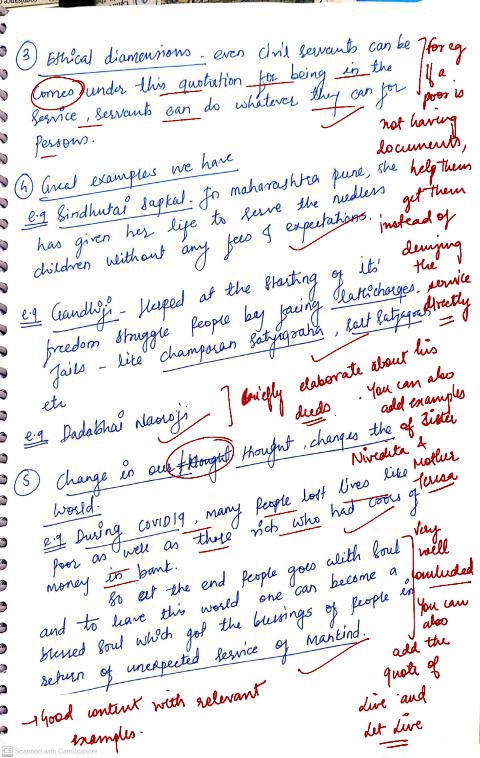 ③ Ethical diamensions - even civil servants can be
comes under this quotation for being in the
service, servants can do whatever they can for
persons.
For eg
If a
poor is
not having
documents,
help them
get them
instead of
denying
the
service
directly
④ Great examples we have
e.g Sindhutai Sapkal - In maharashtra pune, she
has given her life to serve the needless
children without any fees & expectations.
e.g Gandhiji - Helped at the starting of its
freedom struggle People by facing lathicharges,
Jails - like champaran Satyagraha, salt Satyagrah
etc
e.g Dadabhai Naoroji
Briefly elaborate about his
deeds.
You can also
add examples
of Sister
Nivedita &
Mother
Teresa
⑤ Change in our thought thought, changes the
world.
e.g During COVID19, many People lost lives like
Poor as well as those rich who had coors of
money in bank.
So at the end People goes with Soul
and to leave this world one can become a
blessed Soul which got the blessings of people in
return of unexpected service of Mankind.
Very
well
concluded
You can
also
add the
quote of
Live and
Let Live
→ Good content with relevant
examples.
CS Scanned with CamScanner